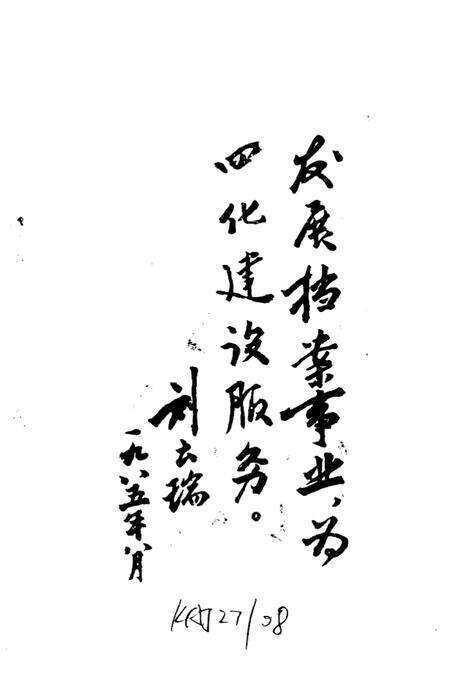 发展档案事业，为
四化建设服务。
刘云瑞
一九八五年八月